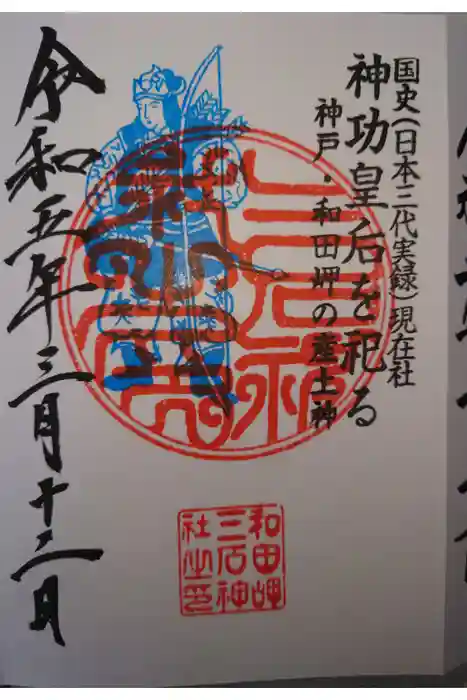 国史(日本三代実録)現在社
神功皇后を祀る
神戸・和田岬の産土神
令和五年三月十二日
和田岬
三石神
社之印